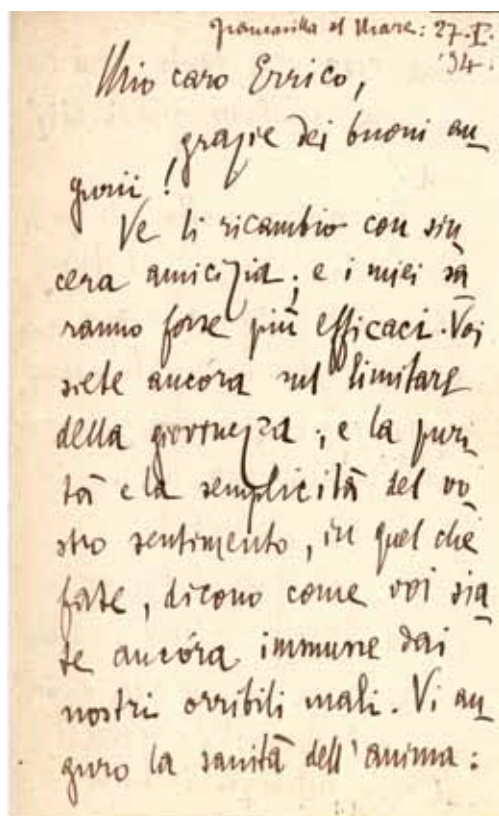 Francavilla al Mare: 27.I.
'94.
Mio caro Errico,
grazie dei buoni au_
gurii!
Ve li ricambio con sin_
cera amicizia; e i miei sa_
ranno forse più efficaci. Voi
siete ancóra sul limitare
della giovinezza; e la puri_
tà e la semplicità del vo_
stro sentimento, in quel che
fate, dicono come voi sia_
te ancóra immune dai
nostri orribili mali. Vi au_
guro la sanità dell'anima: